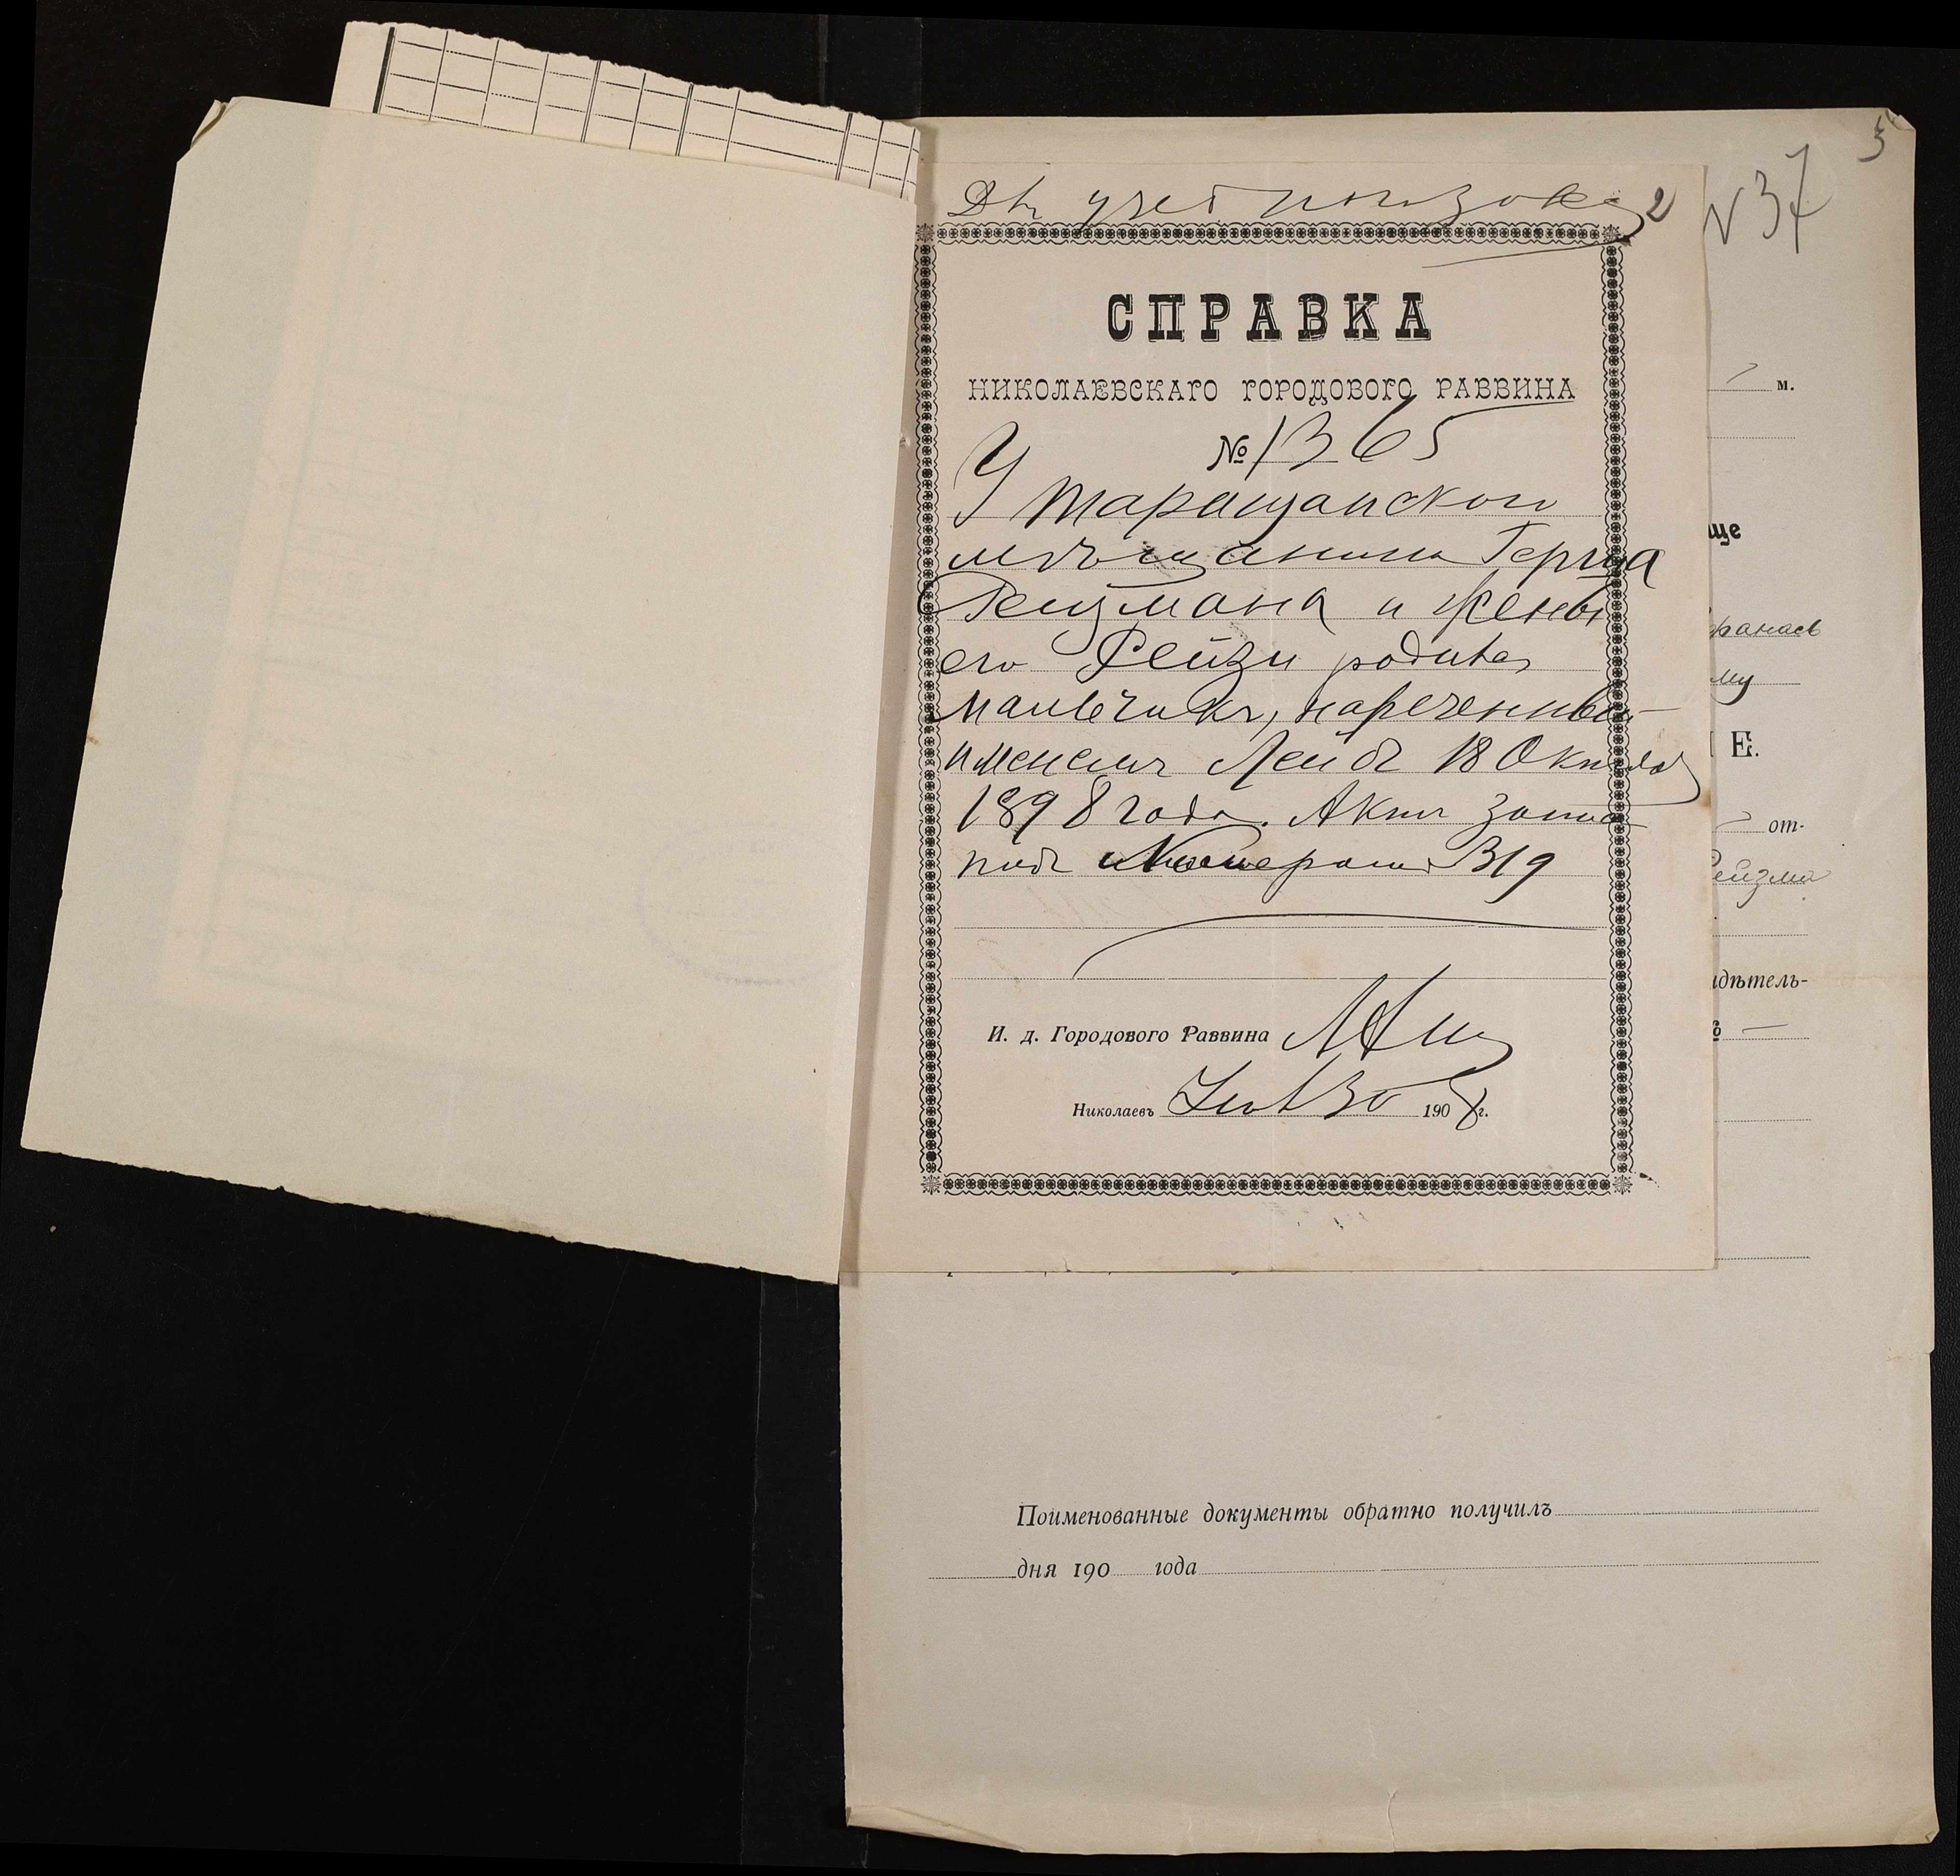 5
N 37
2
СПРАВКА
НИКОЛАЕВСКАГО ГОРОДОВОГО РАВВИНА
№ 1365
У Таращанского
мѣщанина Герша
Рейзмана и жены
его Рейзи родился
мальчикъ, нареченный
именемъ Лейбъ 18 Октября
1898 года. Актъ запис
подъ Номеромъ 319
И. д. Городового Раввина
Николаевъ 30 1908 г.
м.
ще
му
Е.
от-
Рейзма
идѣтель-
Поименованные документы обратно получилъ
дня 190 года